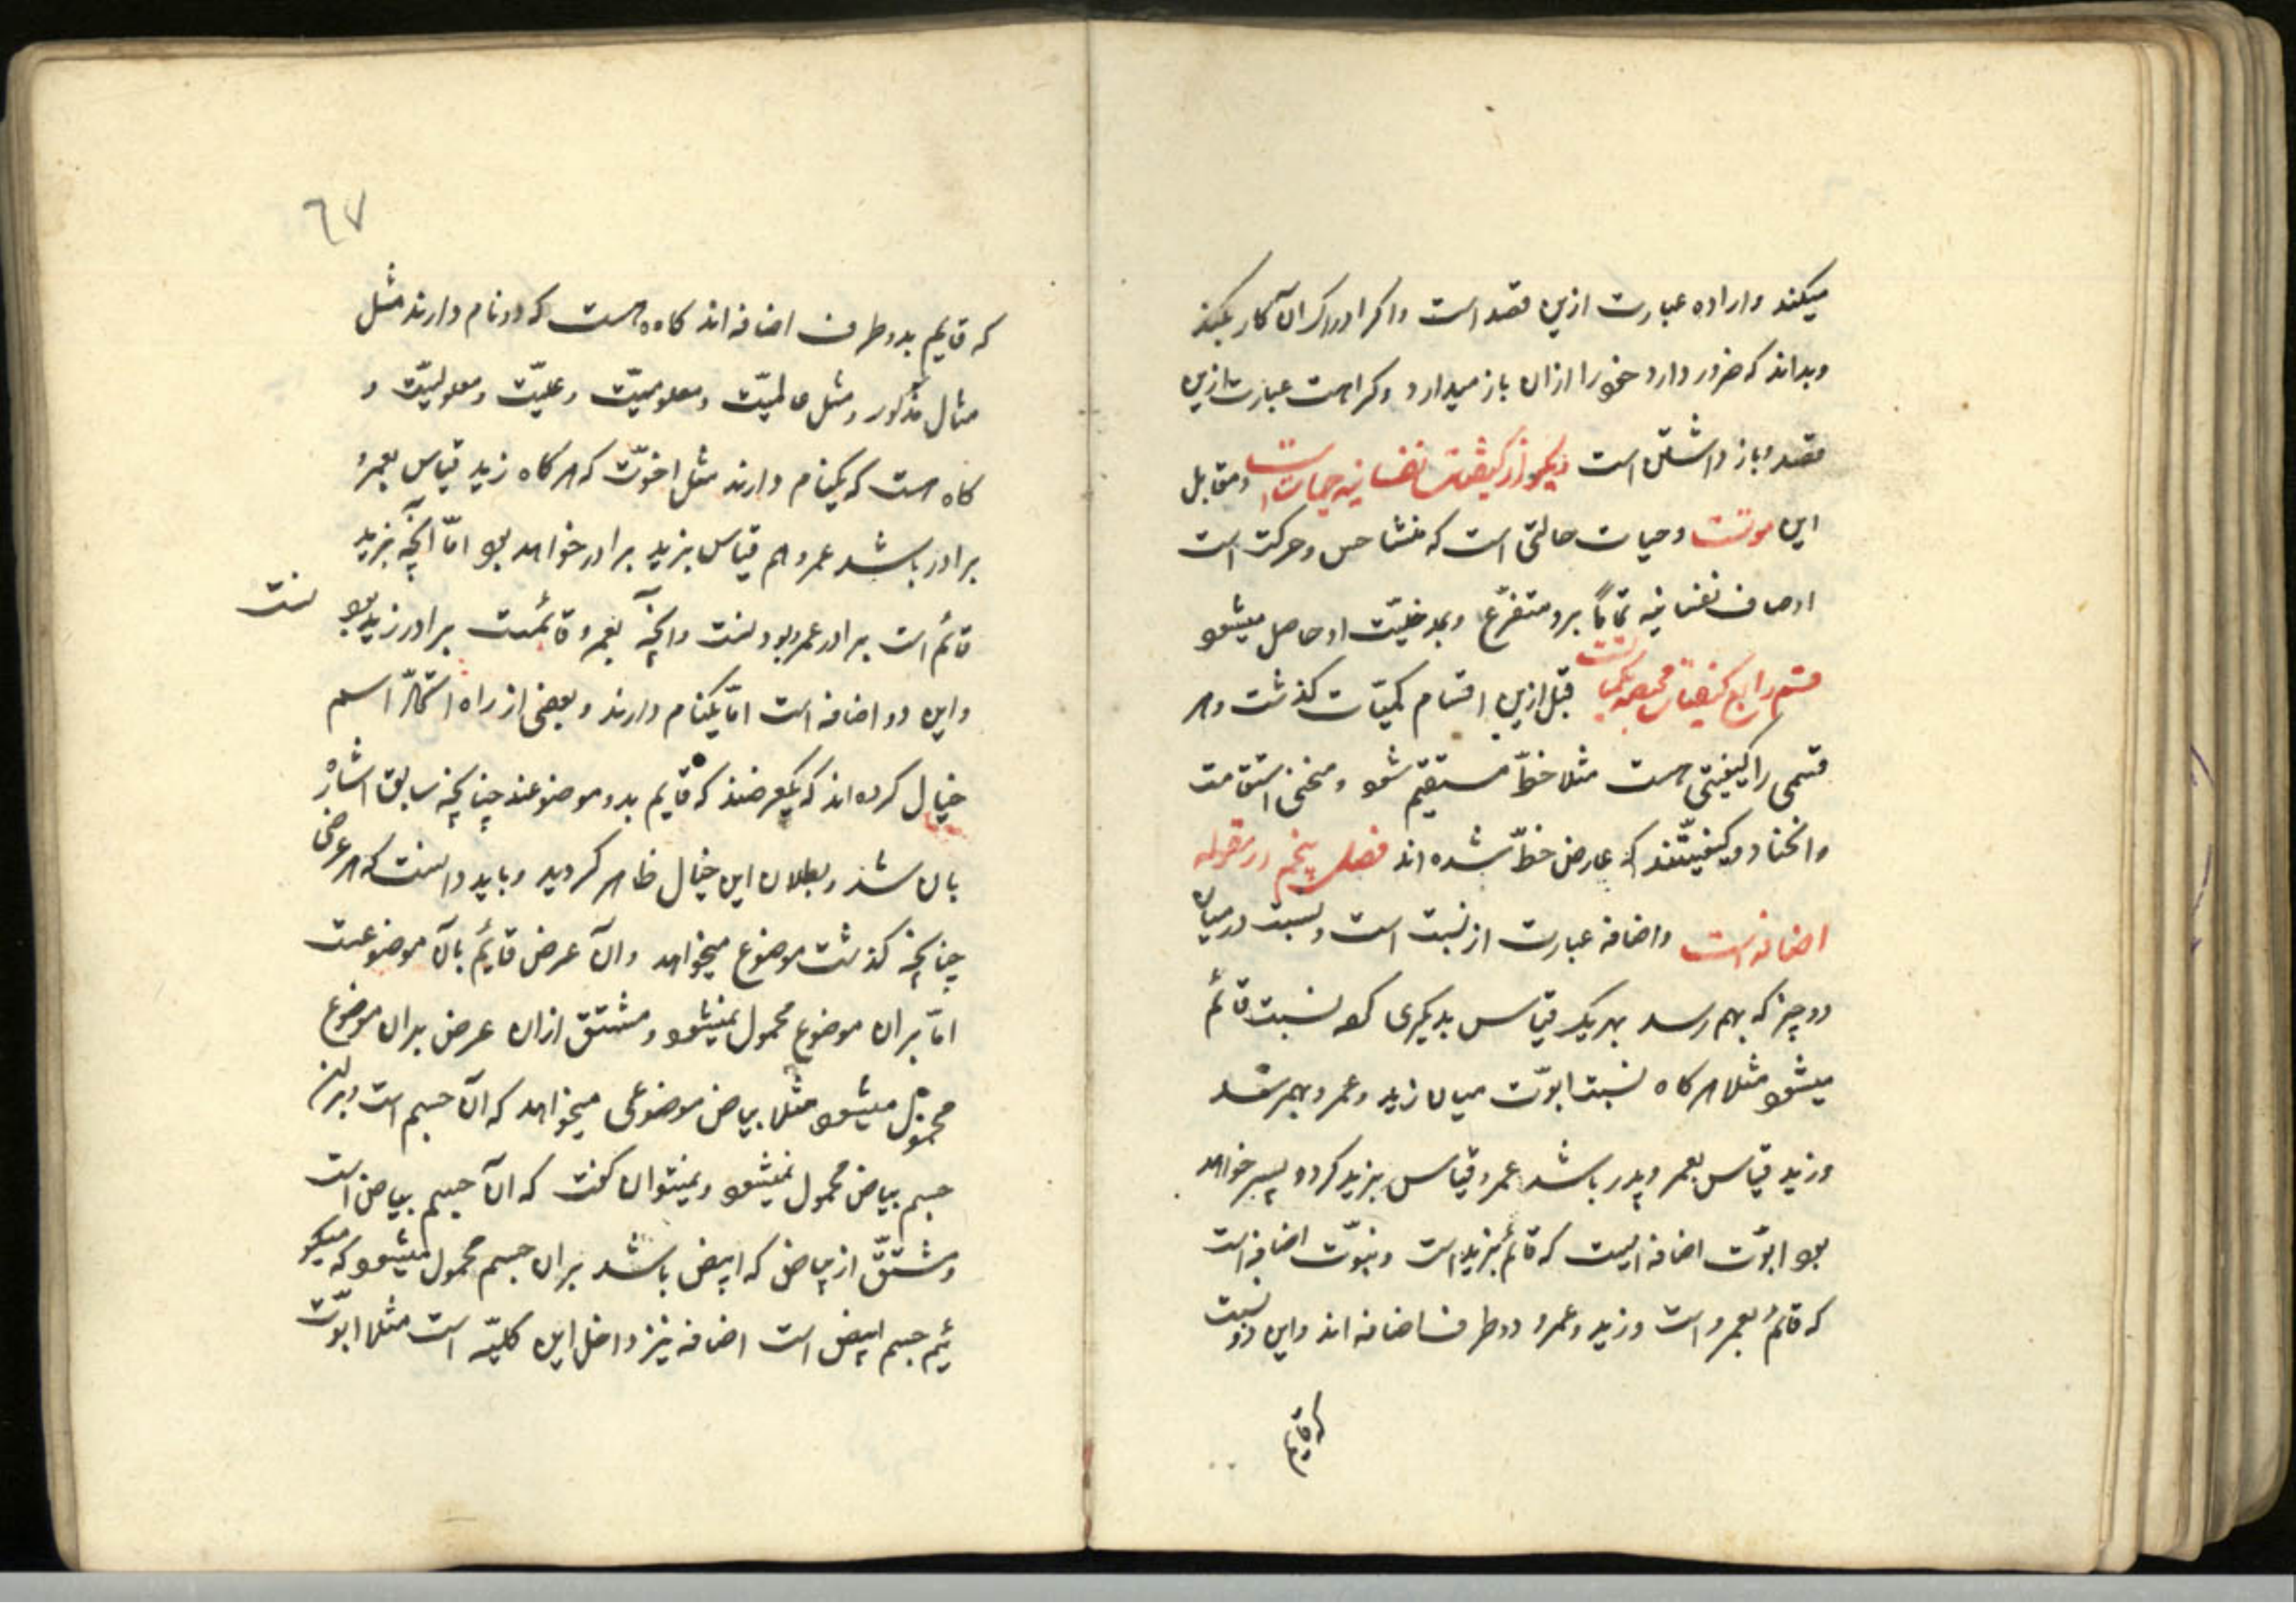 میکند و اراده عبارت ازین قصد است و اکر ادراک آن کار بکند
و بداند که ضرور دارد خود را ازان باز میدارد و کراهت عبارت ازین
قصد و باز داشتن است دیکر از کیفیات نفسانیه حیات است و مقابل
این موتست و حیات حالتی است که منشا حس و حرکت است
اوصاف نفسانیه تماماً برو متفرّع و بمدخلیّت او حاصل میشود
قسم رابع کیفیات مختصه بکمیّات است قبل ازین اقسام کمیّات کذشت و هر
قسمی را کیفیتی هست مثلا خطّ مستقیم شود و منحنی استقامت
و انحنا دو کیفیّتند که عارض خطّ شده اند فصل پنجم در مقوله
اضافه است و اضافه عبارت از نسبت است و نسبت در میان
دو چیز که بهم رسد بهر یک قیاس بدیکری نسبت قائم
میشود مثلا هرکاه نسبت ابوّت میان زید و عمرو بهم رسد
و زید قیاس بعمرو پدر باشد عمرو قیاس بزید کرده پسر خواهد
بود ابوّت اضافه ایست که قائم بزید است و بنوّت اضافه است
که قائم بعمرو است و زید و عمرو دو طرف اضافه اند و این دو نسبت
که قایم
٦٧
که قایم بدو طرف اضافه اند کاه هست که دو نام دارند مثل
مثال مذکور و مثل عالمیّت و معلومیّت و علیّت و معلولیّت و
کاه هست که یکنام دارند مثل اخوّت که هرکاه زید قیاس بعمرو
برادر باشد عمرو هم قیاس بزید برادر خواهد بود امّا آنچه بزید
قائم است برادر عمرو بودنست و آنچه بعمرو قائمست برادر زید بودنست
و این دو اضافه است امّا یکنام دارند و بعضی از راه اشتراک اسم
خیال کرده اند که یکعرضند که قایم بدو موضوعند چنانچه سابق اشاره
بان شد و بطلان این خیال ظاهر کردید و باید دانست که هر عرضی
چنانچه کذشت موضوع میخواهد و آن عرض قایم بآن موضوعست
امّا بران موضوع محمول نمیشود و مشتق ازان عرض بران موضوع
محمول میشود مثلا بیاض موضوعی میخواهد که آن جسم است و بران
جسم بیاض محمول نمیشود و نمیتوان کفت که آن جسم بیاض است
و مشتقّ از بیاض که ابیض باشد بران جسم محمول میشود که میکو
ئیم جسم ابیض است اضافه نیز داخل این کلیّه است مثلا ابوّت